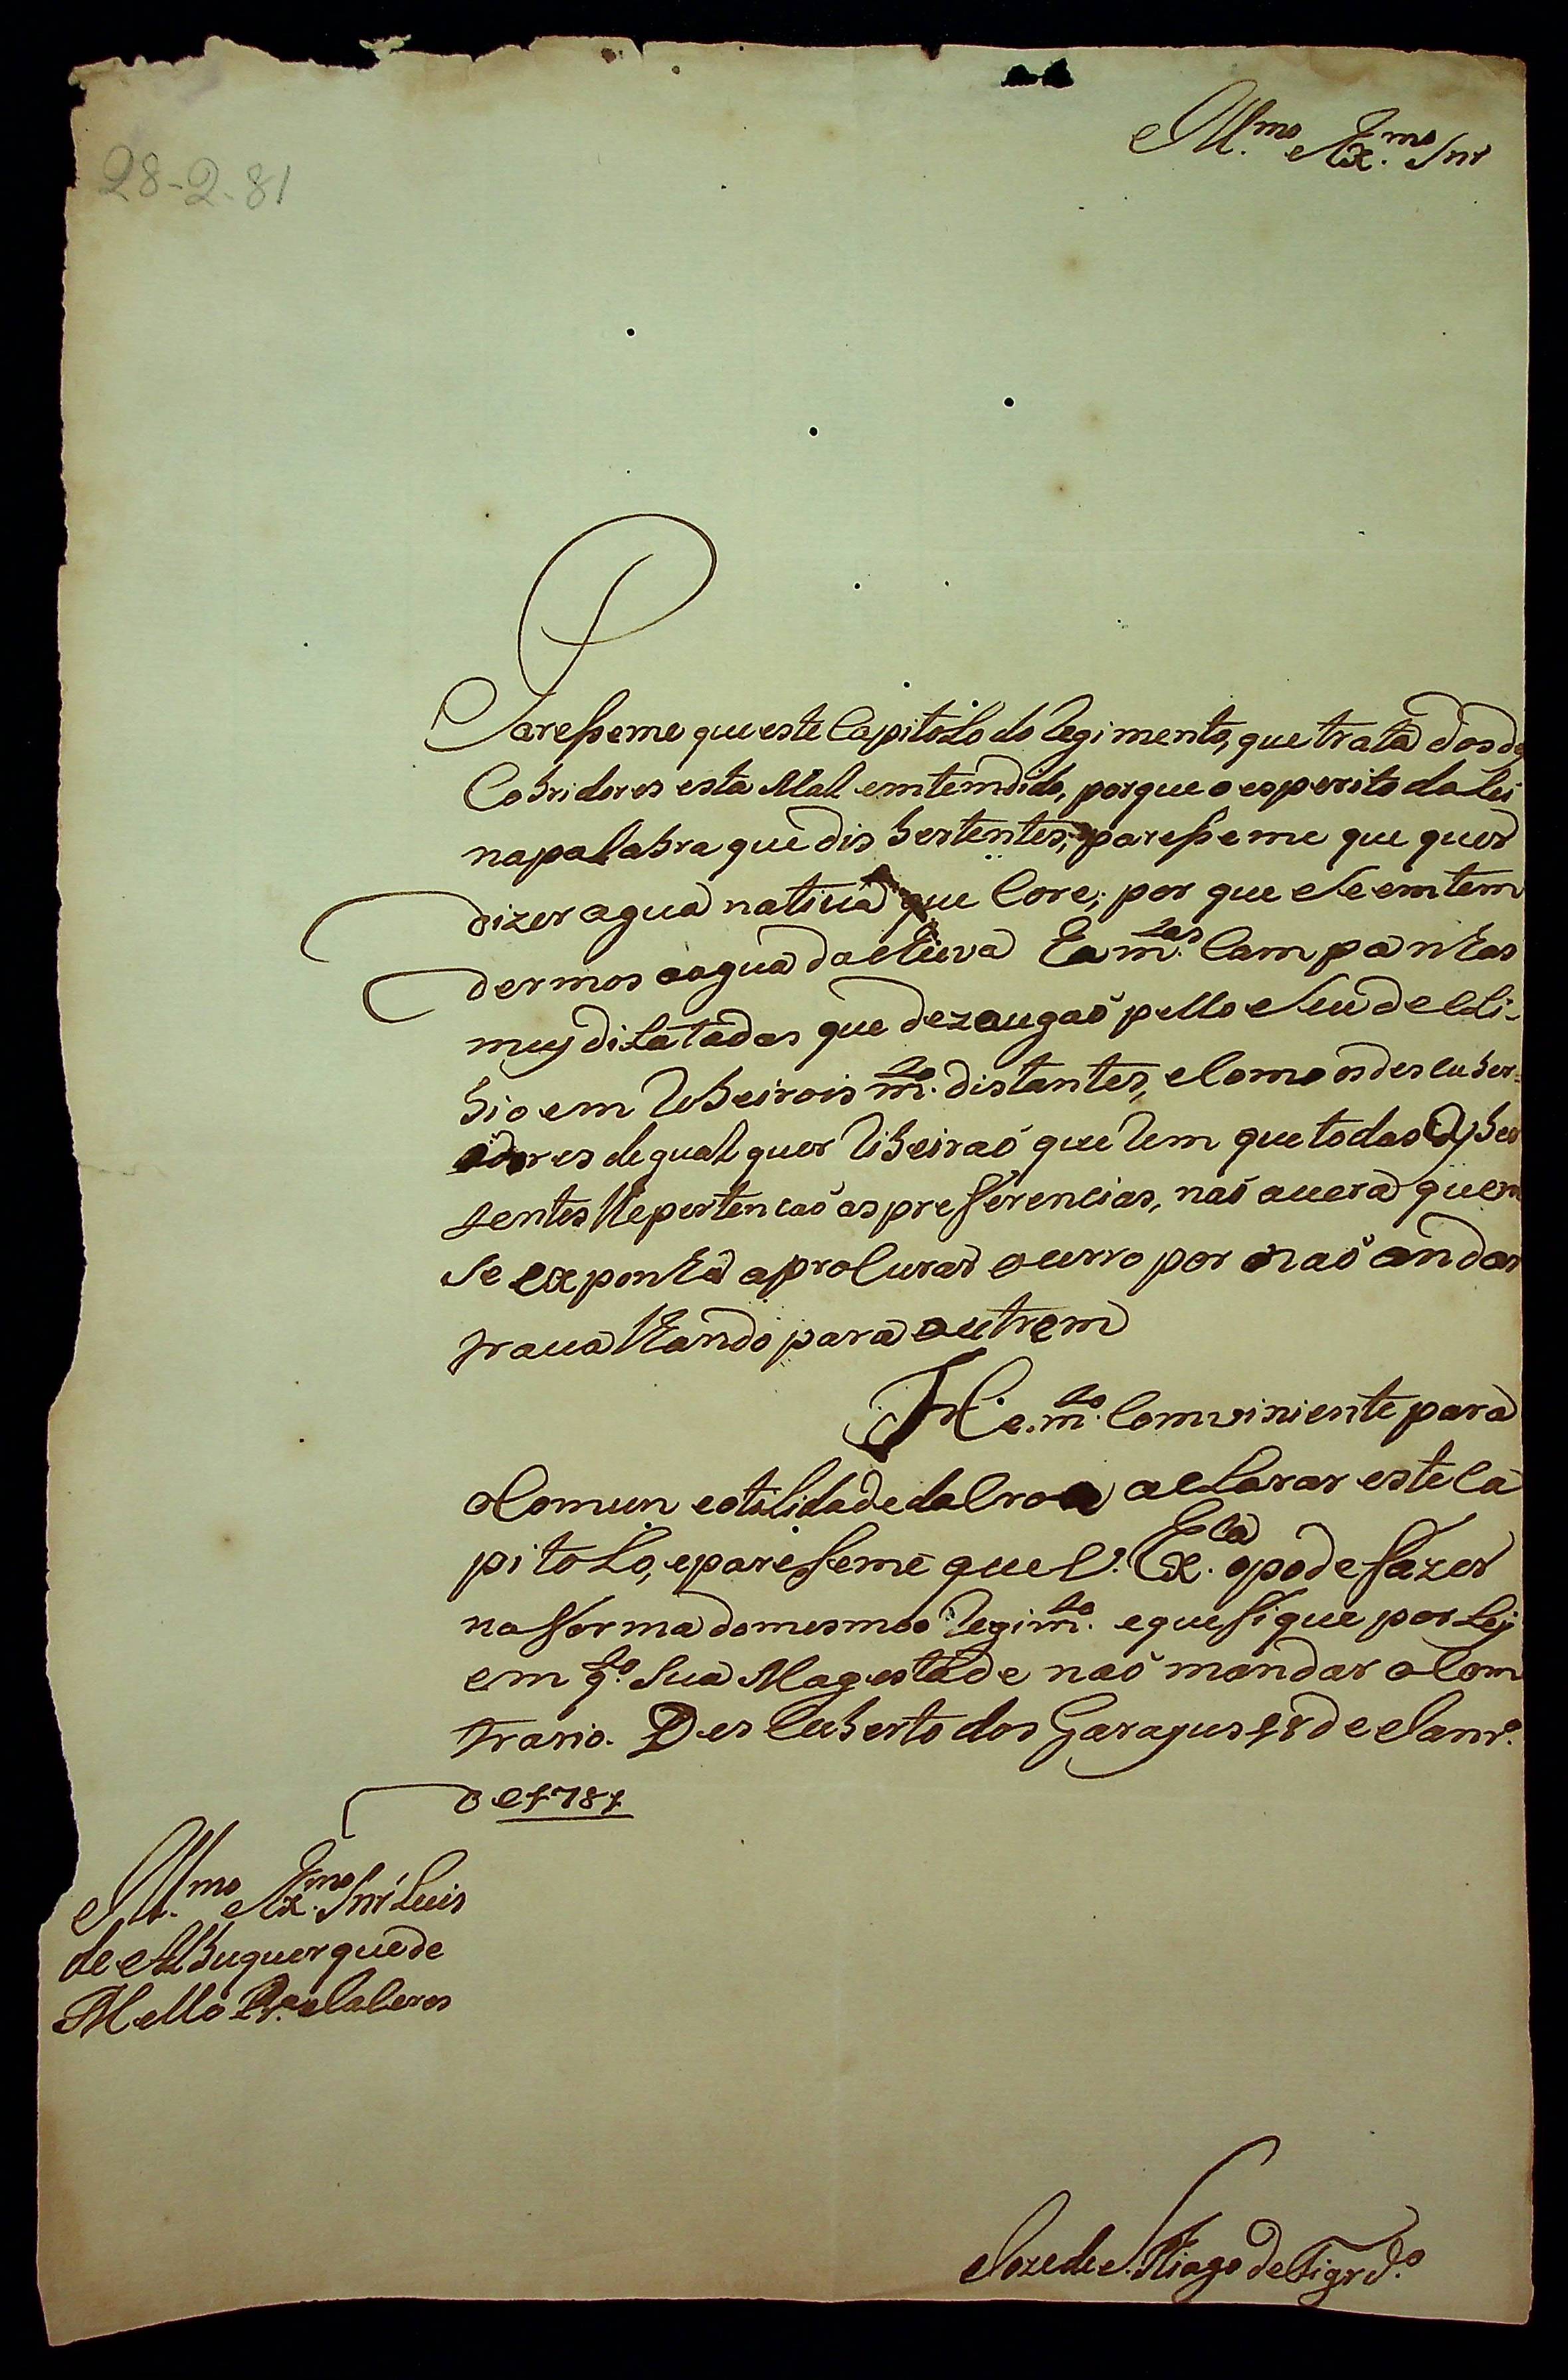 28-2-81
Ill.mo e Ex.mo Snr
Paresseme que este Capitolo do Regimento, que trata dos des
Cobridores esta Mal emtemdido, porque o esperito da lei
na palabra que dis bertentes, paresseme que quer
dizer agua natiua que Core; por que se emtem
dermos a agua da chuva ha m.tas Campanhas
muy dilatadas que dezaugaõ pello seu decli-
bio em Ribeirois m.to distantes, e como os descuber-
dores de qual quer Ribeiraõ que tem que todas as ber
tentes lhe pertencaõ as preferencias, naõ auera quem
se exponha a procurar ouro por naõ andar
traualhando para outrem
He m.to Comviniente para
o Comun e otilidade da Croa aclarar este Ca
pitolo, e paresseme que V. Ex.cia o pode fazer
na forma do mesmo Regim.to e que fique por Ley
em q.to Sua Magestade naõ mandar o Com
trario. Descuberto dos Garajus 18 de Janr.o
de 1781
Ill.mo e Ex.mo Snr Luis
de Albuquerque de
Mello Pr.a e Caceres
Joze de S.Tiago de Figr.do